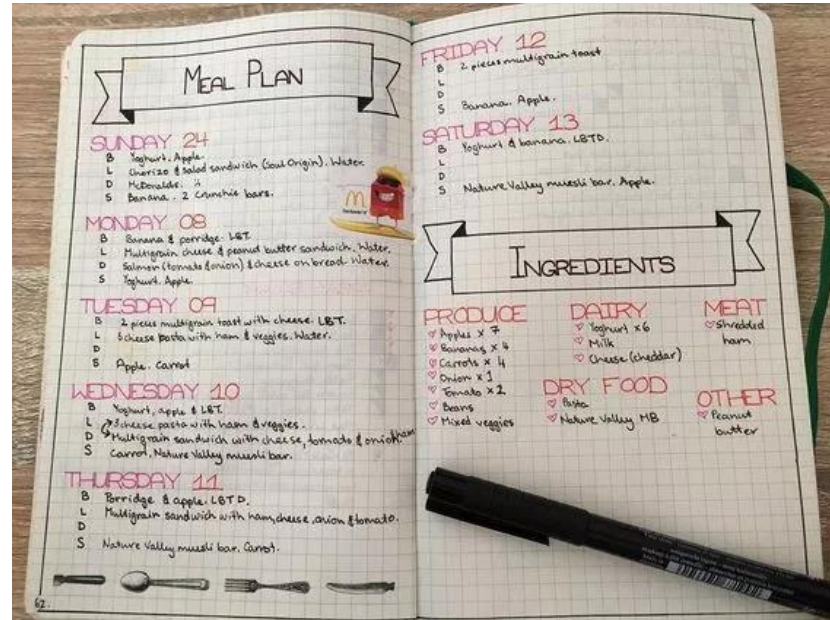 MEAL PLAN
SUNDAY 24
B Yoghurt. Apple.
L Chorizo & salad sandwich (Soul Origin). Water
D McDonalds.
S Banana. 2 Crunchie bars.
MONDAY 08
B Banana & porridge. LBT.
L Multigrain cheese & peanut butter sandwich. Water.
D Salmon (tomato & onion) & cheese on bread. Water.
S Yoghurt. Apple.
TUESDAY 09
B 2 pieces multigrain toast with cheese. LBT.
L 3 cheese pasta with ham & veggies. Water.
D
S Apple. Carrot
WEDNESDAY 10
B Yoghurt, apple & LBT.
L 3 cheese pasta with ham & veggies.
D Multigrain sandwich with cheese, tomato & onion ham
S Carrot. Nature Valley muesli bar.
THURSDAY 11
B Porridge & apple. LBTD.
L Multigrain sandwich with ham, cheese, onion & tomato.
D
S Nature Valley muesli bar. Carrot.
62.
FRIDAY 12
B 2 pieces multigrain toast
L
D
S Banana. Apple.
SATURDAY 13
B Yoghurt & banana. LBTD.
L
D
S Nature Valley muesli bar. Apple.
INGREDIENTS
PRODUCE
Apples x 7
Bananas x 4
Carrots x 4
Onion x 1
Tomato x 2
Beans
Mixed veggies
DAIRY
Yoghurt x 6
Milk
Cheese (cheddar)
MEAT
Shredded
ham
DRY FOOD
Pasta
Nature Valley MB
OTHER
Peanut
butter